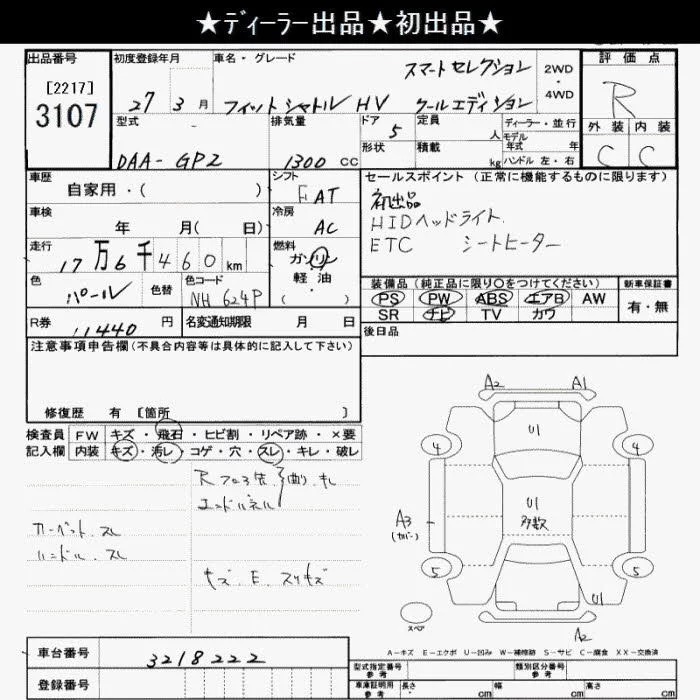 ★ディーラー出品★初出品★
出品番号 初度登録年月 車名・グレード 評価点
[2217]
3107
27 3月 フィットシャトルHV スマートセレクション クールエディション 2WD・4WD
R
型式 排気量 ドア 定員 ディーラー・並行 外装 内装
5 人 モデル年式 年
DAA-GP2 1300 CC 形状 積載 kg ハンドル 左・右 C C
車歴 シフト セールスポイント (正常に機能するものに限ります)
自家用・( ) FAT 初出品
車検 冷房 HIDヘッドライト
年 月( 日) AC ETC シートヒーター
走行 燃料
17万6千460km ガソリン
軽・油
・( )
色 色替 色コード 装備品(純正品に限り○をつけてください) 新車保証書
パール NH624P PS PW ABS エアB AW 有・無
SR ナビ TV カワ
R券 11440円 名変通知期限 月 日 後日品
注意事項申告欄(不具合内容等は具体的に記入して下さい)
修復歴 有 [箇所 ]
検査員 FW キズ・飛石・ヒビ割・リペア跡・×要
記入欄 内装 キズ・汚レ・コゲ・穴・スレ・キレ・破レ
Rフロア先
エンドパネル
曲り
カーペット.スレ
ハンドル.スレ
キズ.E.スリキズ
A2 A1
U1
4 4
A3
(カバー)
U1
多数
5 5
U1
スペア
A2
A-キズ E-エクボ U-凹み W-補修跡 S-サビ C-腐食 XX-交換済
車台番号 3218222
登録番号
型式指定番号 参考 類別区分番号 参考
車庫証明用 参考 長さ cm 幅 cm 高さ cm